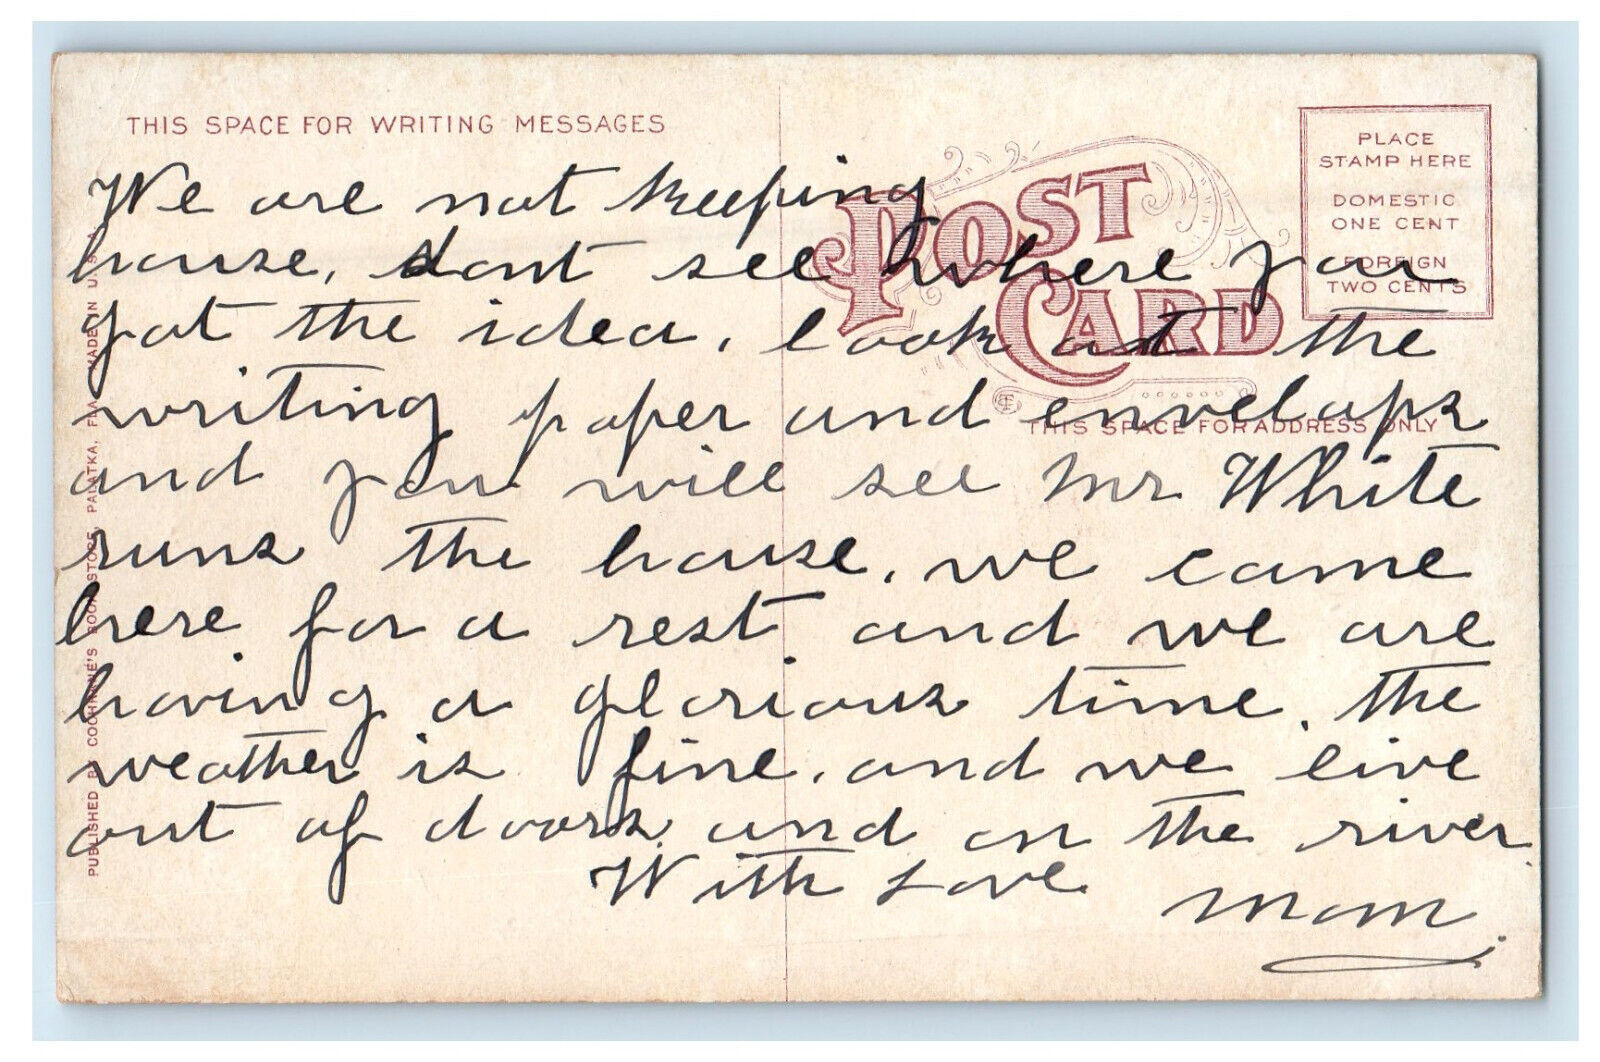 THIS SPACE FOR WRITING MESSAGES
POST
CARD
PLACE
STAMP HERE
DOMESTIC
ONE CENT
FOREIGN
TWO CENTS
THIS SPACE FOR ADDRESS ONLY
PUBLISHED BY COCHRANE'S BOOK STORE, PALATKA, FLA. MADE IN U.S.A.
We are not keeping
house, dont see where you
got the idea, look at the
writing paper and envelops
and you will see Mr White
runs the house, we came
here for a rest and we are
having a glorious time. the
weather is fine, and we live
out of doors and on the river.
With Love
Mom.